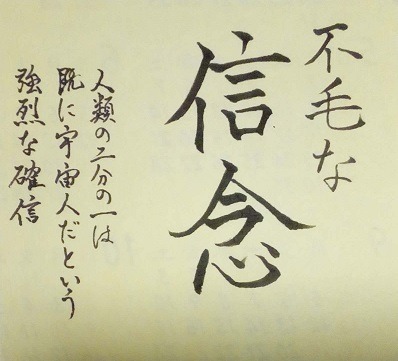 不毛な
信念
人類の二分の一は
既に宇宙人だという
強烈な確信